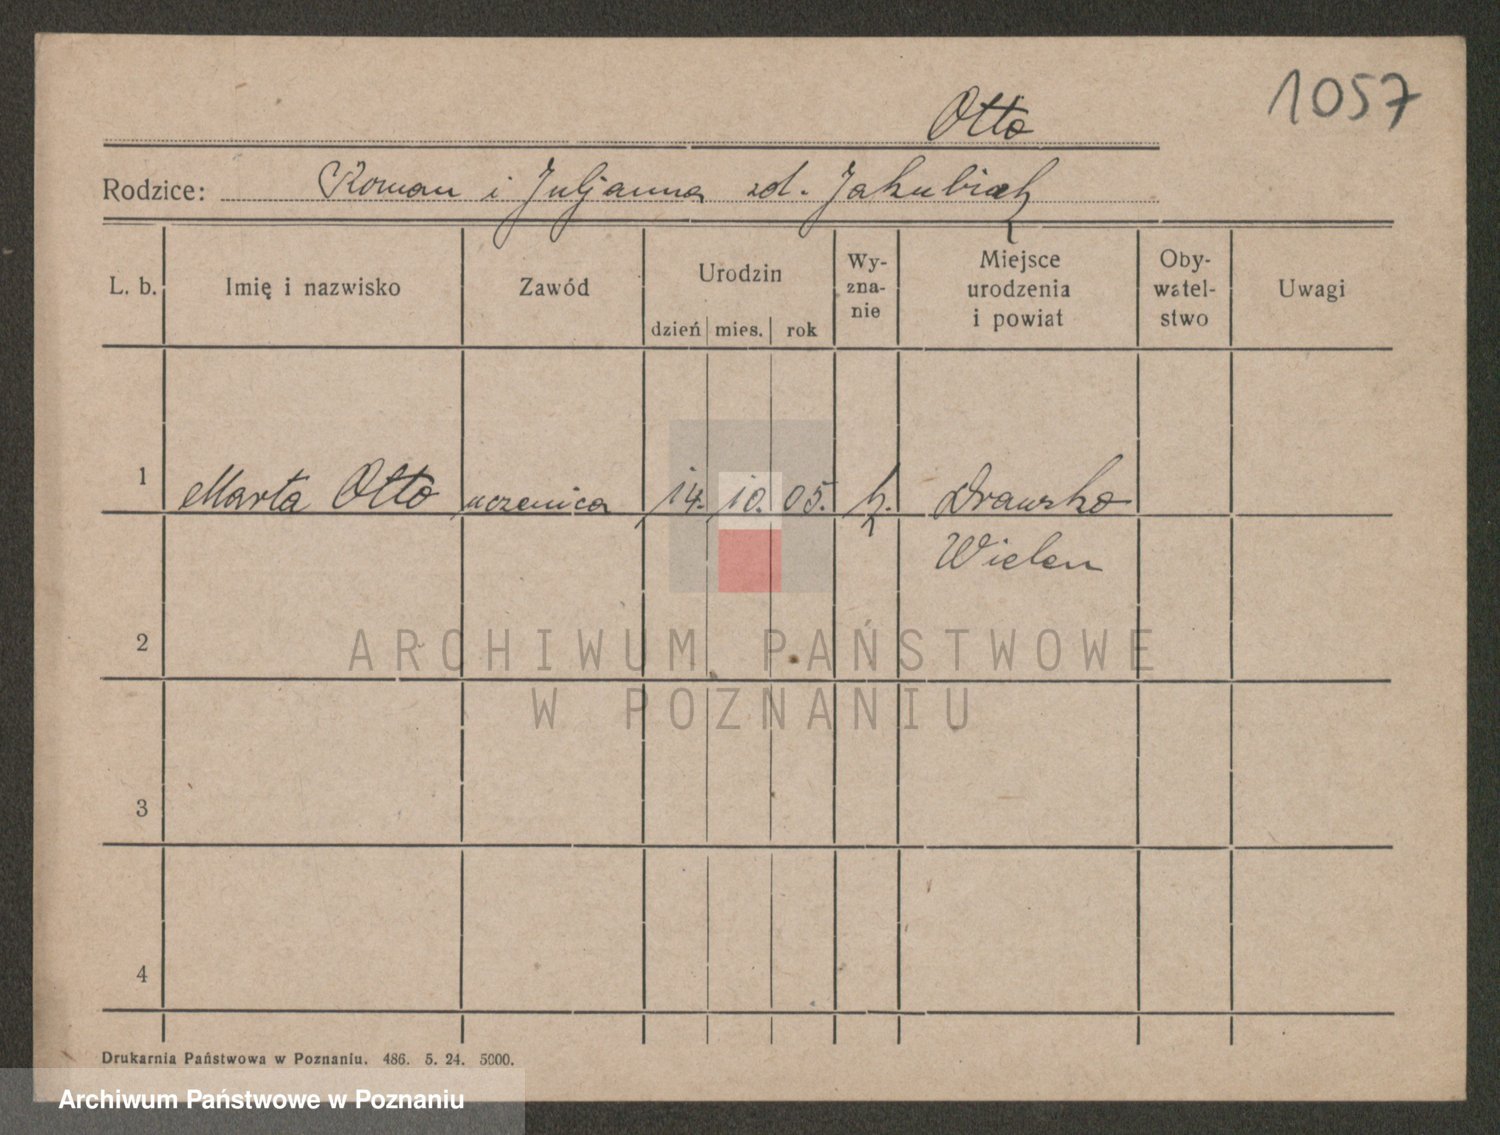 1057
Otto
Rodzice: Roman i Juljanna zd. Jakubiak
L. b. Imię i nazwisko Zawód Urodzin dzień mies. rok Wy-zna-nie Miejsce urodzenia i powiat Oby-watel-stwo Uwagi
1 Marta Otto uczenica 14. 10. 05. k. Drawsko
Wielen
2
ARCHIWUM PAŃSTWOWE
W POZNANIU
3
4
Drukarnia Państwowa w Poznaniu. 486. 5. 24. 5000.
Archiwum Państwowe w Poznaniu